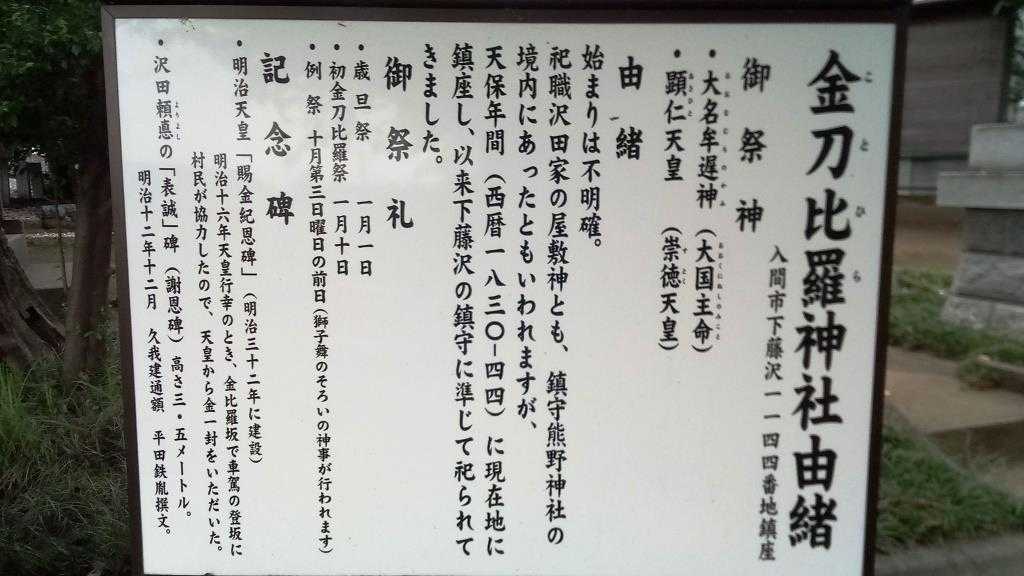 金刀比羅神社由緒
ことひら
入間市下藤沢一一四四番地鎮座
御祭神
・大名牟遅神（大国主命）
おおなむちのかみ
おおくにぬしのみこと
・顕仁天皇（崇徳天皇）
あきひと
すとく
由緒
始まりは不明確。
祀職沢田家の屋敷神とも、鎮守熊野神社の
境内にあったともいわれますが、
天保年間（西暦一八三〇－四四）に現在地に
鎮座し、以来下藤沢の鎮守に準じて祀られて
きました。
御祭礼
・歳旦祭　一月一日
・初金刀比羅祭　一月十日
・例祭　十月第三日曜日の前日（獅子舞のそろいの神事が行われます）
記念碑
・明治天皇「賜金紀恩碑」（明治三十二年に建設）
明治十六年天皇行幸のとき、金比羅坂で車駕の登坂に
村民が協力したので、天皇から金一封をいただいた。
・沢田頼悳の「表誠」碑（謝恩碑）高さ三・五メートル。
ようよし
明治十二年十二月　久我建通額　平田鉄胤撰文。